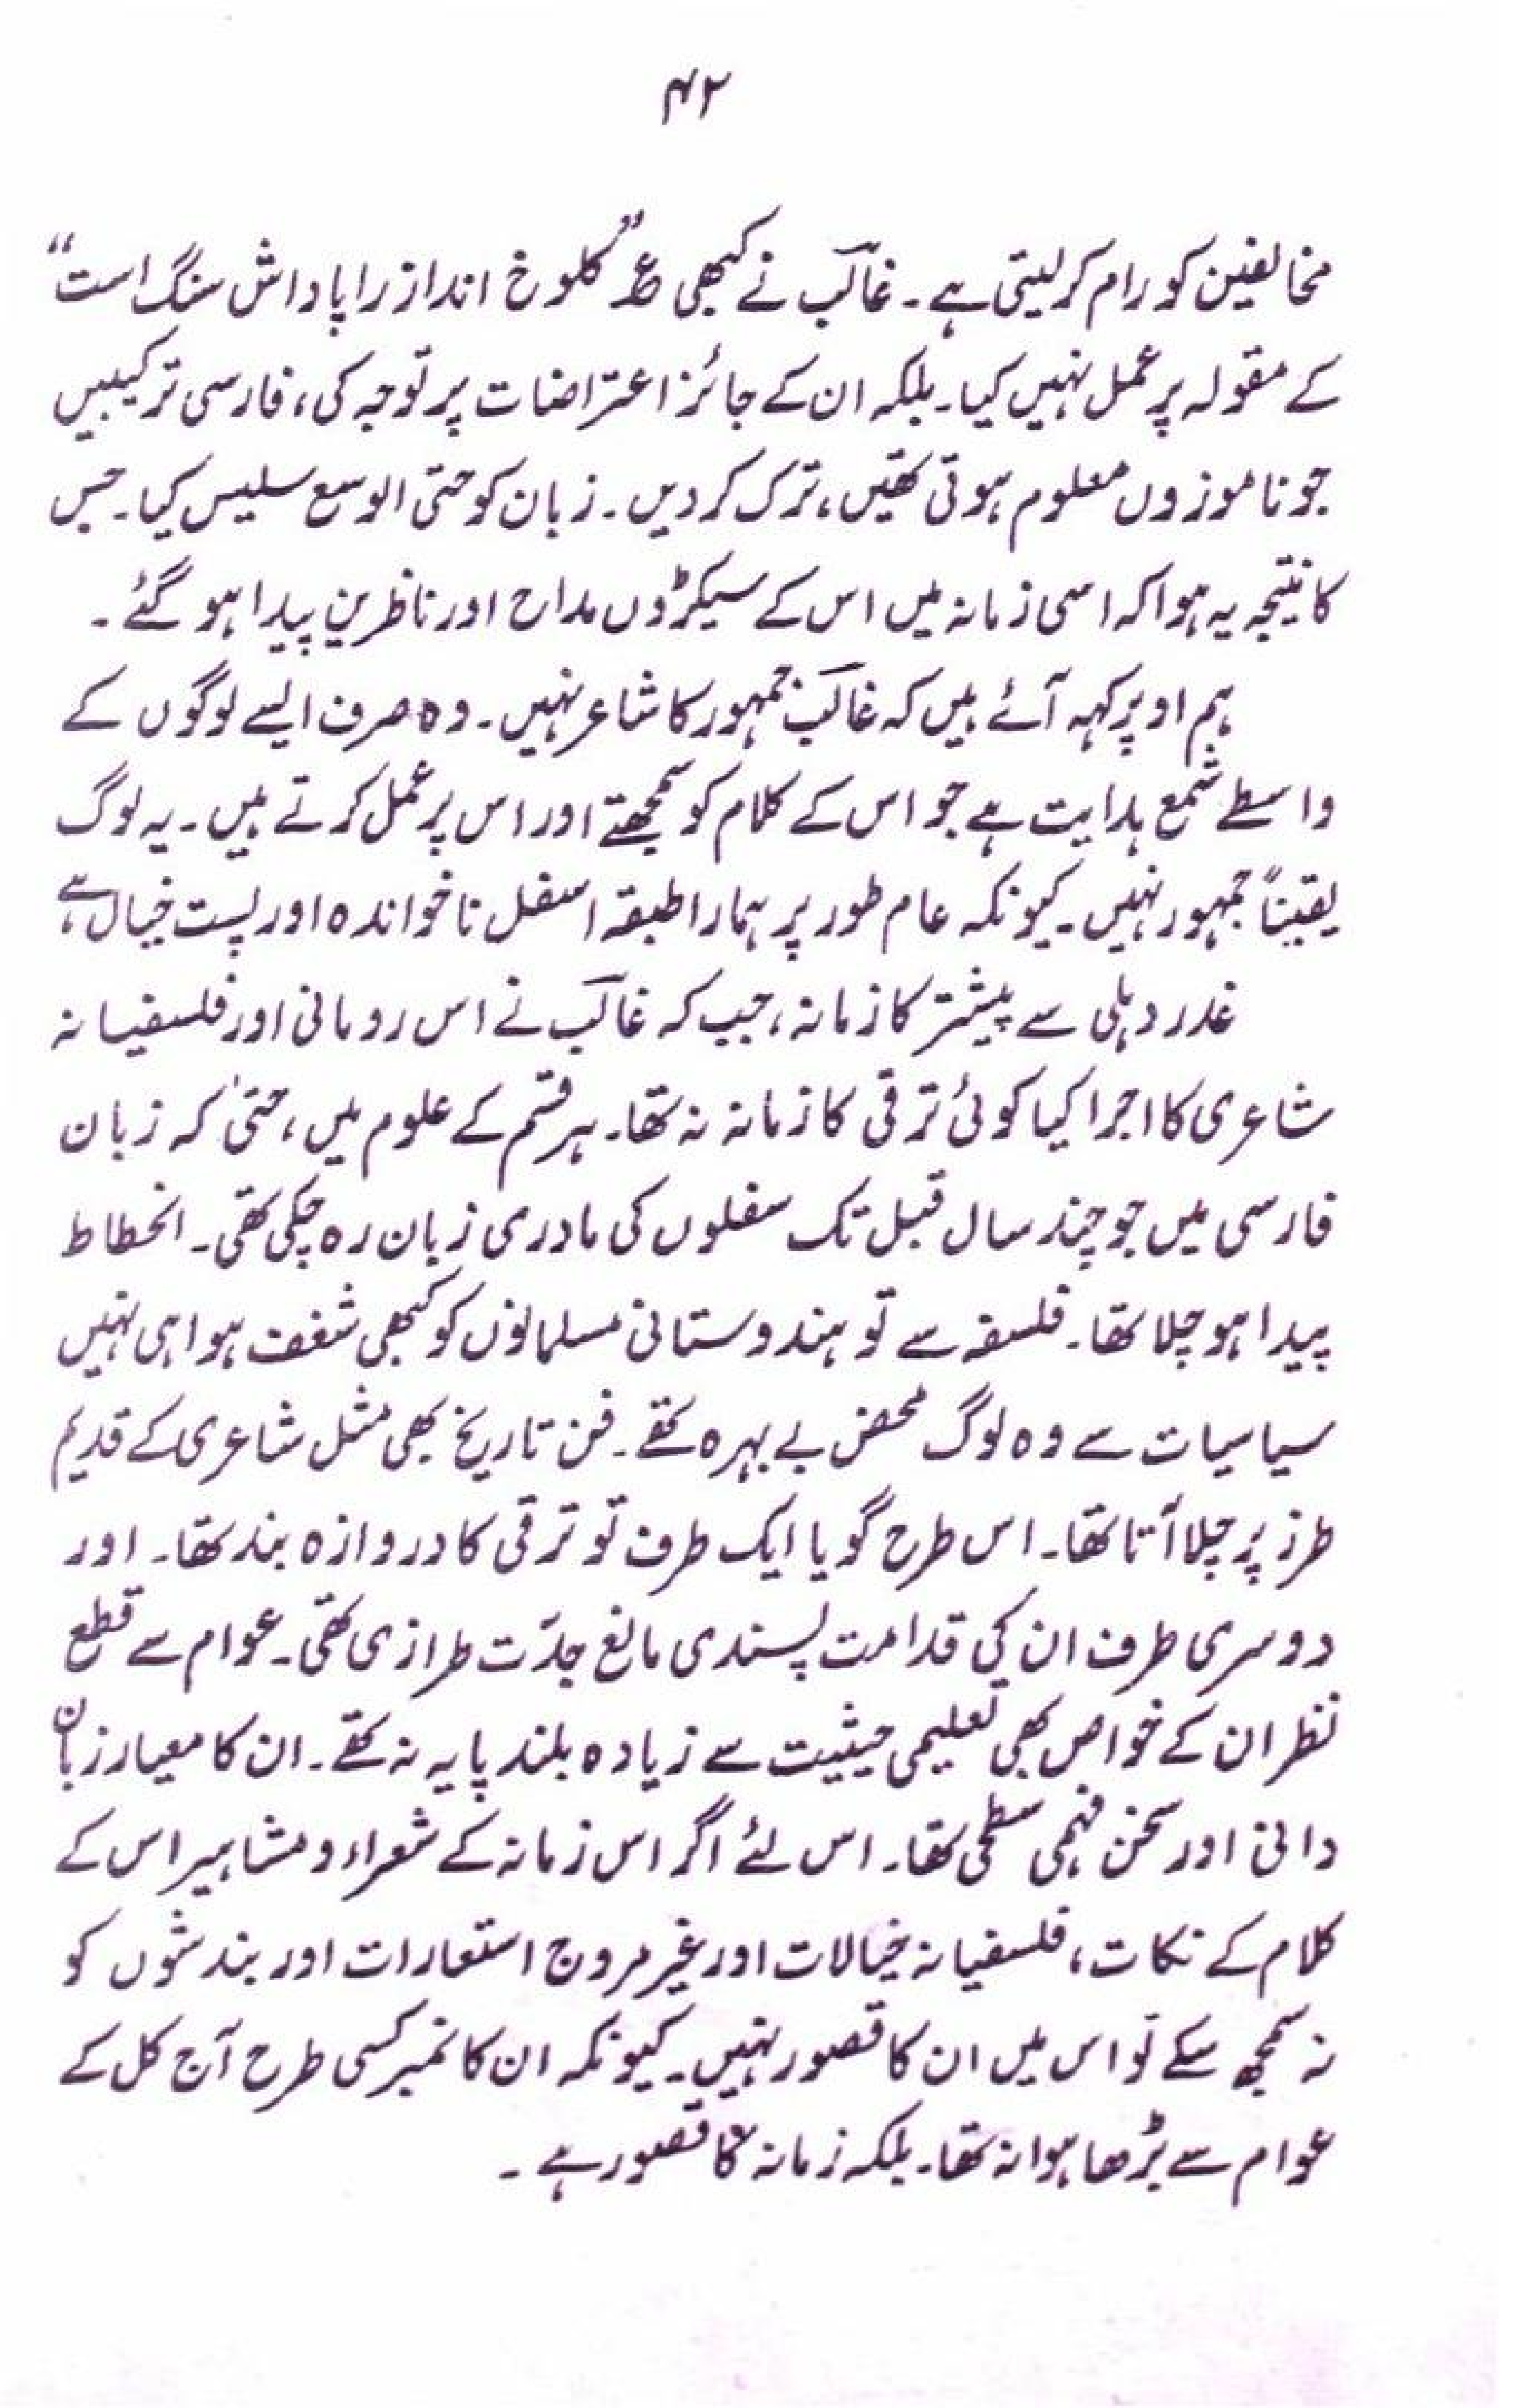 ۴۲
مخالفین کو رام کر لیتی ہے۔ غالب نے کبھی ع "کلوخ انداز را پاداش سنگ است"
کے مقولہ پر عمل نہیں کیا۔ بلکہ ان کے جائز اعتراضات پر توجہ کی، فارسی ترکیبیں
جو ناموزوں معلوم ہوتی تھیں، ترک کر دیں۔ زبان کو حتی الوسع سلیس کیا۔ جس
کا نتیجہ یہ ہوا کہ اسی زمانہ میں اس کے سیکڑوں مداح اور ناظرین پیدا ہو گئے۔
ہم اوپر کہہ آئے ہیں کہ غالب جمہور کا شاعر نہیں۔ وہ صرف ایسے لوگوں کے
واسطے شمع ہدایت ہے جو اس کے کلام کو سمجھتے اور اس پر عمل کرتے ہیں۔ یہ لوگ
یقیناً جمہور نہیں۔ کیونکہ عام طور پر ہمارا طبقہ اسفل ناخواندہ اور پست خیال ہے
غدر دہلی سے پیشتر کا زمانہ، جب کہ غالب نے اس رومانی اور فلسفیانہ
شاعری کا اجرا کیا کوئی ترقی کا زمانہ نہ تھا۔ ہر قسم کے علوم میں، حتیٰ کہ زبان
فارسی میں جو چند سال قبل تک مغلوں کی مادری زبان رہ چکی تھی۔ انحطاط
پیدا ہو چلا تھا۔ فلسفہ سے تو ہندوستانی مسلمانوں کو کبھی شغف ہوا ہی نہیں
سیاسیات سے وہ لوگ محض بے بہرہ تھے۔ فن تاریخ بھی مثل شاعری کے قدیم
طرز پر چلا آتا تھا۔ اس طرح گویا ایک طرف تو ترقی کا دروازہ بند تھا۔ اور
دوسری طرف ان کی قدامت پسندی مانع جدّت طرازی تھی۔ عوام سے قطع
نظر ان کے خواص بھی تعلیمی حیثیت سے زیادہ بلند پایہ نہ تھے۔ ان کا معیار زبان
دانی اور سخن فہمی سطحی تھا۔ اس لئے اگر اس زمانہ کے شعراء و مشاہیر اس کے
کلام کے نکات، فلسفیانہ خیالات اور غیر مروج استعارات اور بندشوں کو
نہ سمجھ سکے تو اس میں ان کا قصور نہیں۔ کیونکہ ان کا نمبر کسی طرح آج کل کے
عوام سے بڑھا ہوا نہ تھا۔ بلکہ زمانہ کا قصور ہے۔